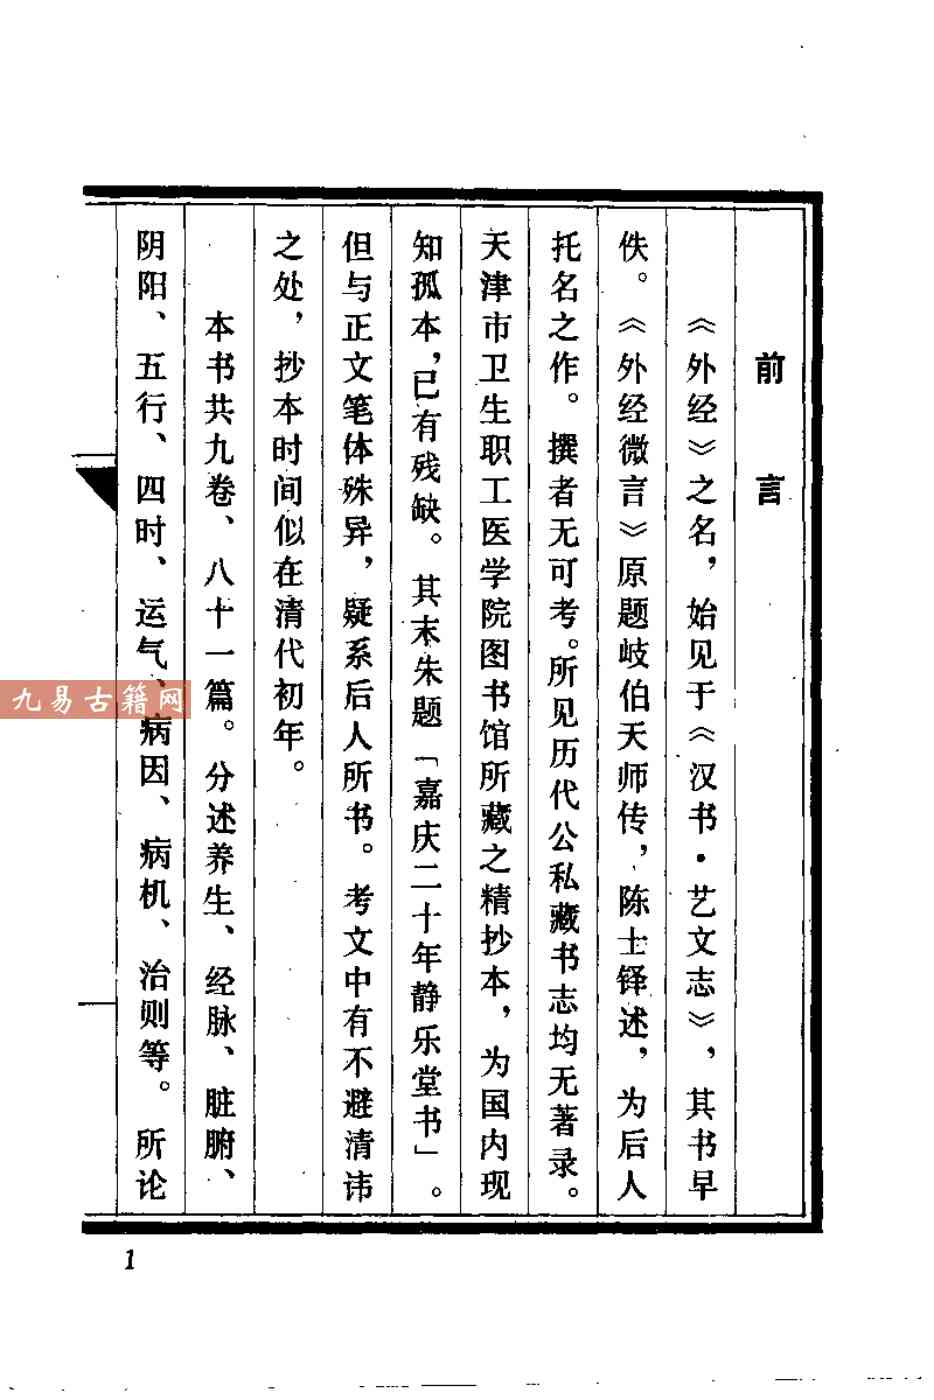 前言
《外经》之名，始见于《汉书·艺文志》，其书早
佚。《外经微言》原题岐伯天师传，陈士铎述，为后人
托名之作。撰者无可考。所见历代公私藏书志均无著录。
天津市卫生职工医学院图书馆所藏之精抄本，为国内现
知孤本，已有残缺。其末朱题「嘉庆二十年静乐堂书」。
但与正文笔体殊异，疑系后人所书。考文中有不避清讳
之处，抄本时间似在清代初年。
本书共九卷、八十一篇。分述养生、经脉、脏腑、
阴阳、五行、四时、运气、病因、病机、治则等。所论
九易古籍网
1